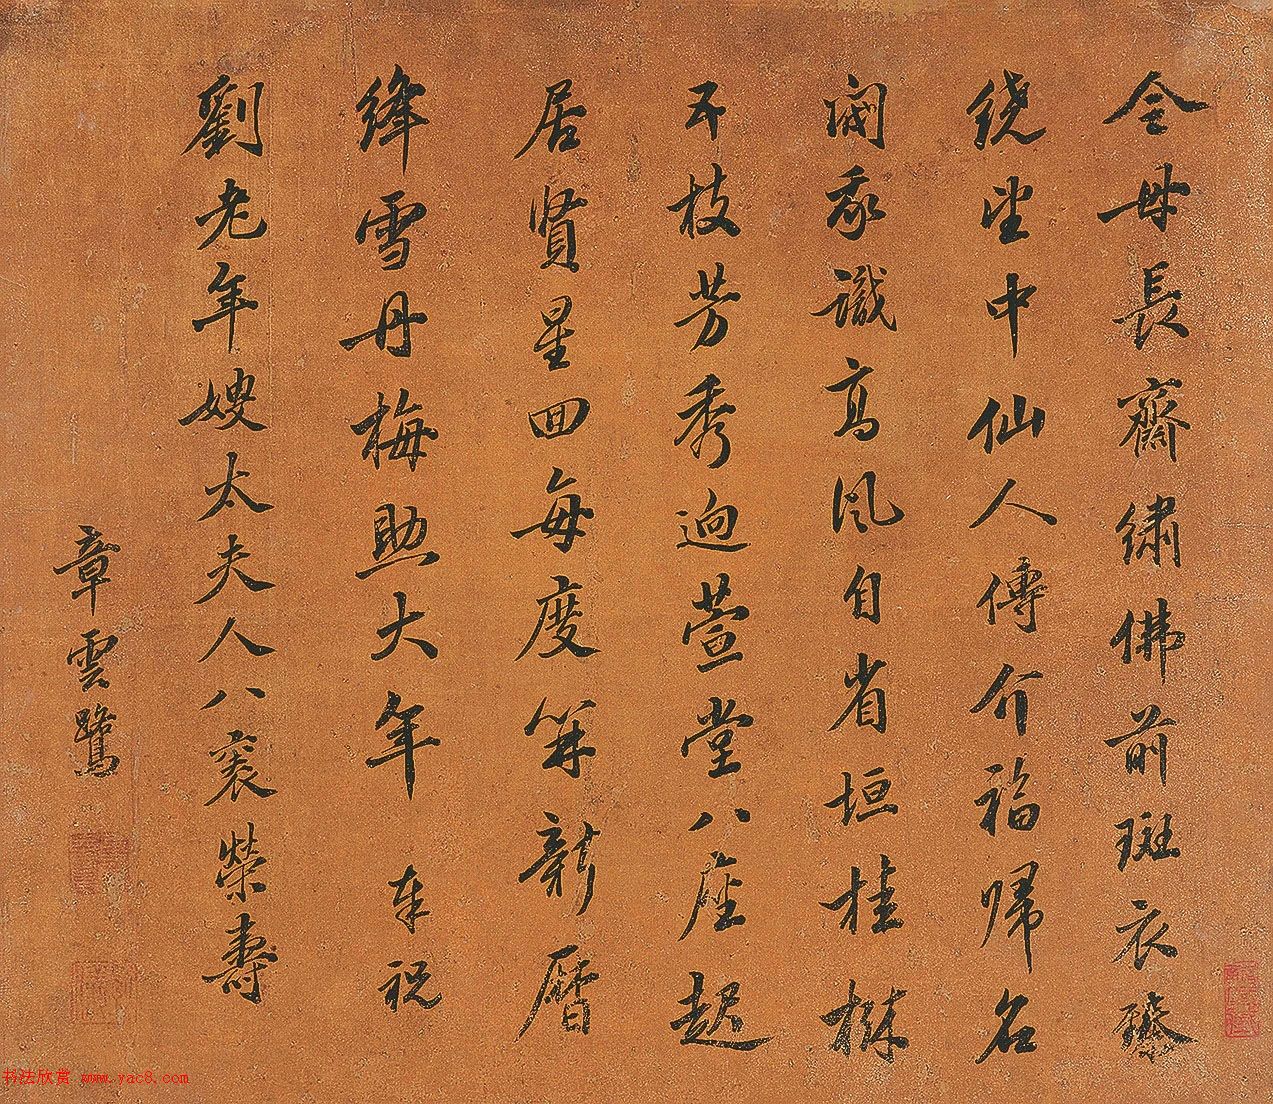 金母長齋繡佛前斑衣璨
繞坐中仙人傳介福歸名
閫我識高風自省垣桂
五枝芳秀迥萱堂八座起
居賢星回每度算新曆
絳雪丹梅助大年 奉祝
劉老年嫂太夫人八袠榮壽
章雲鷺
书法欣赏 www.yac8.com